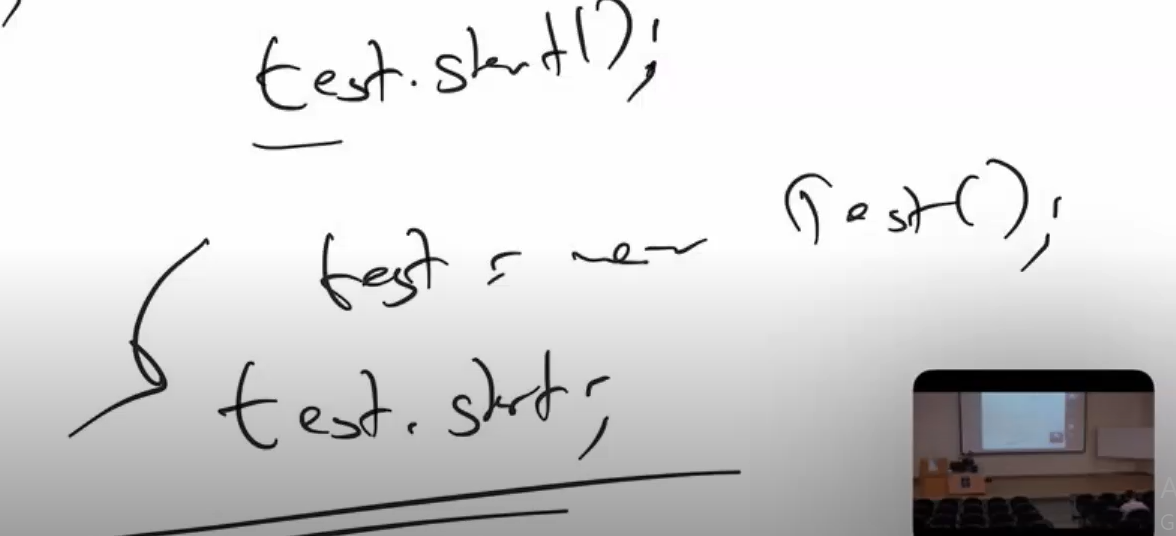 test.start();
test = new Test();
test.start;